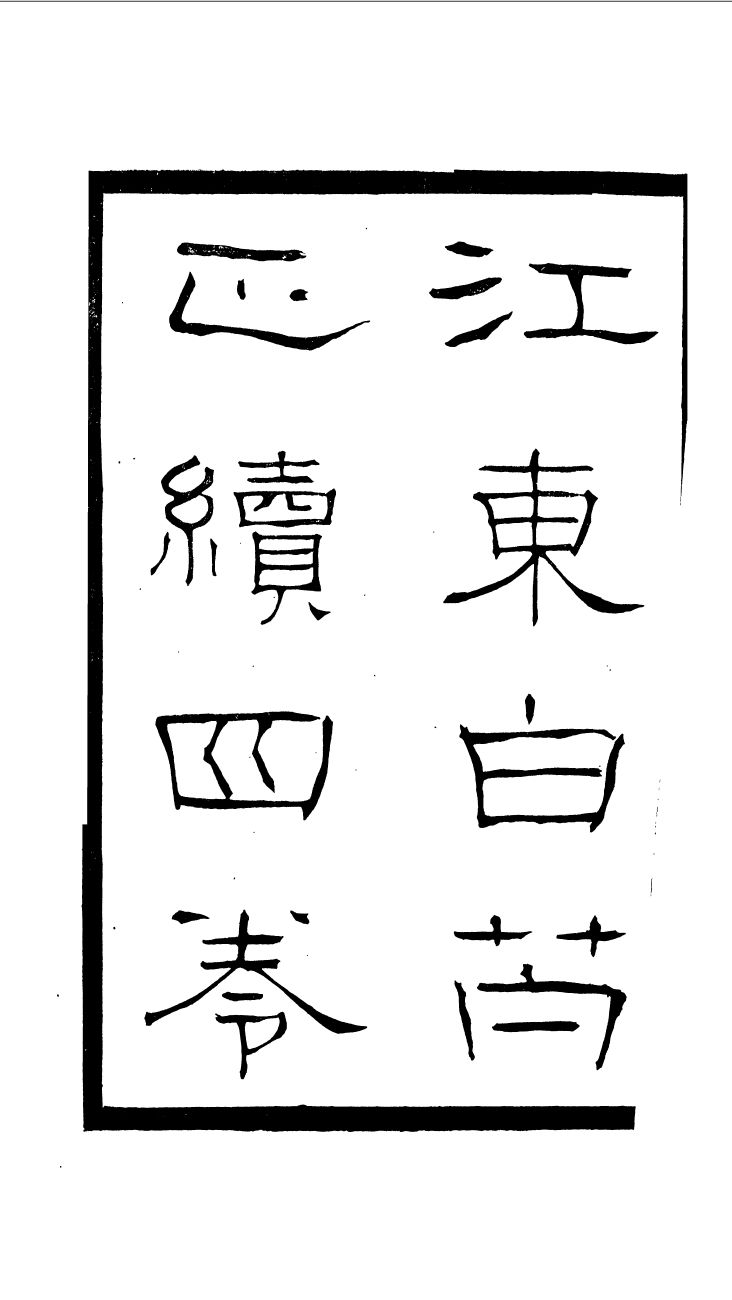 江東白苧
正續四卷